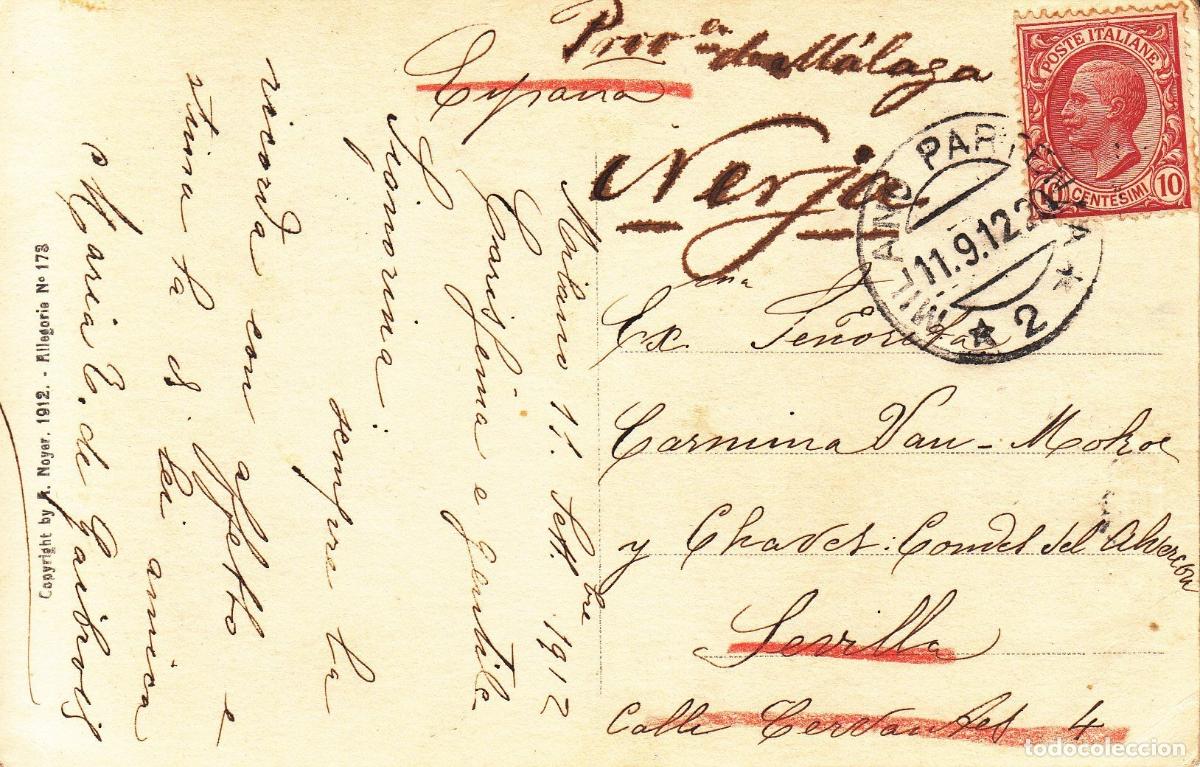 Prov cia de Málaga
España
Nerja
POSTE ITALIANE
10 CENTESIMI 10
MILANO PARTENZA
11.9.12.
* 2 *
Ex.ma Señorita
Carmina Van-
y Chavez. Condes del
Sevilla
Calle Cervantes 4
Milano 11. Settbre 1912
Carissima e gentile
Signorina.
sempre la
ricorda con affetto e
stima la di lei amica
Maria E. de
Copyright by A. Noyer. 1912. - Allegorie No 173
todocoleccion